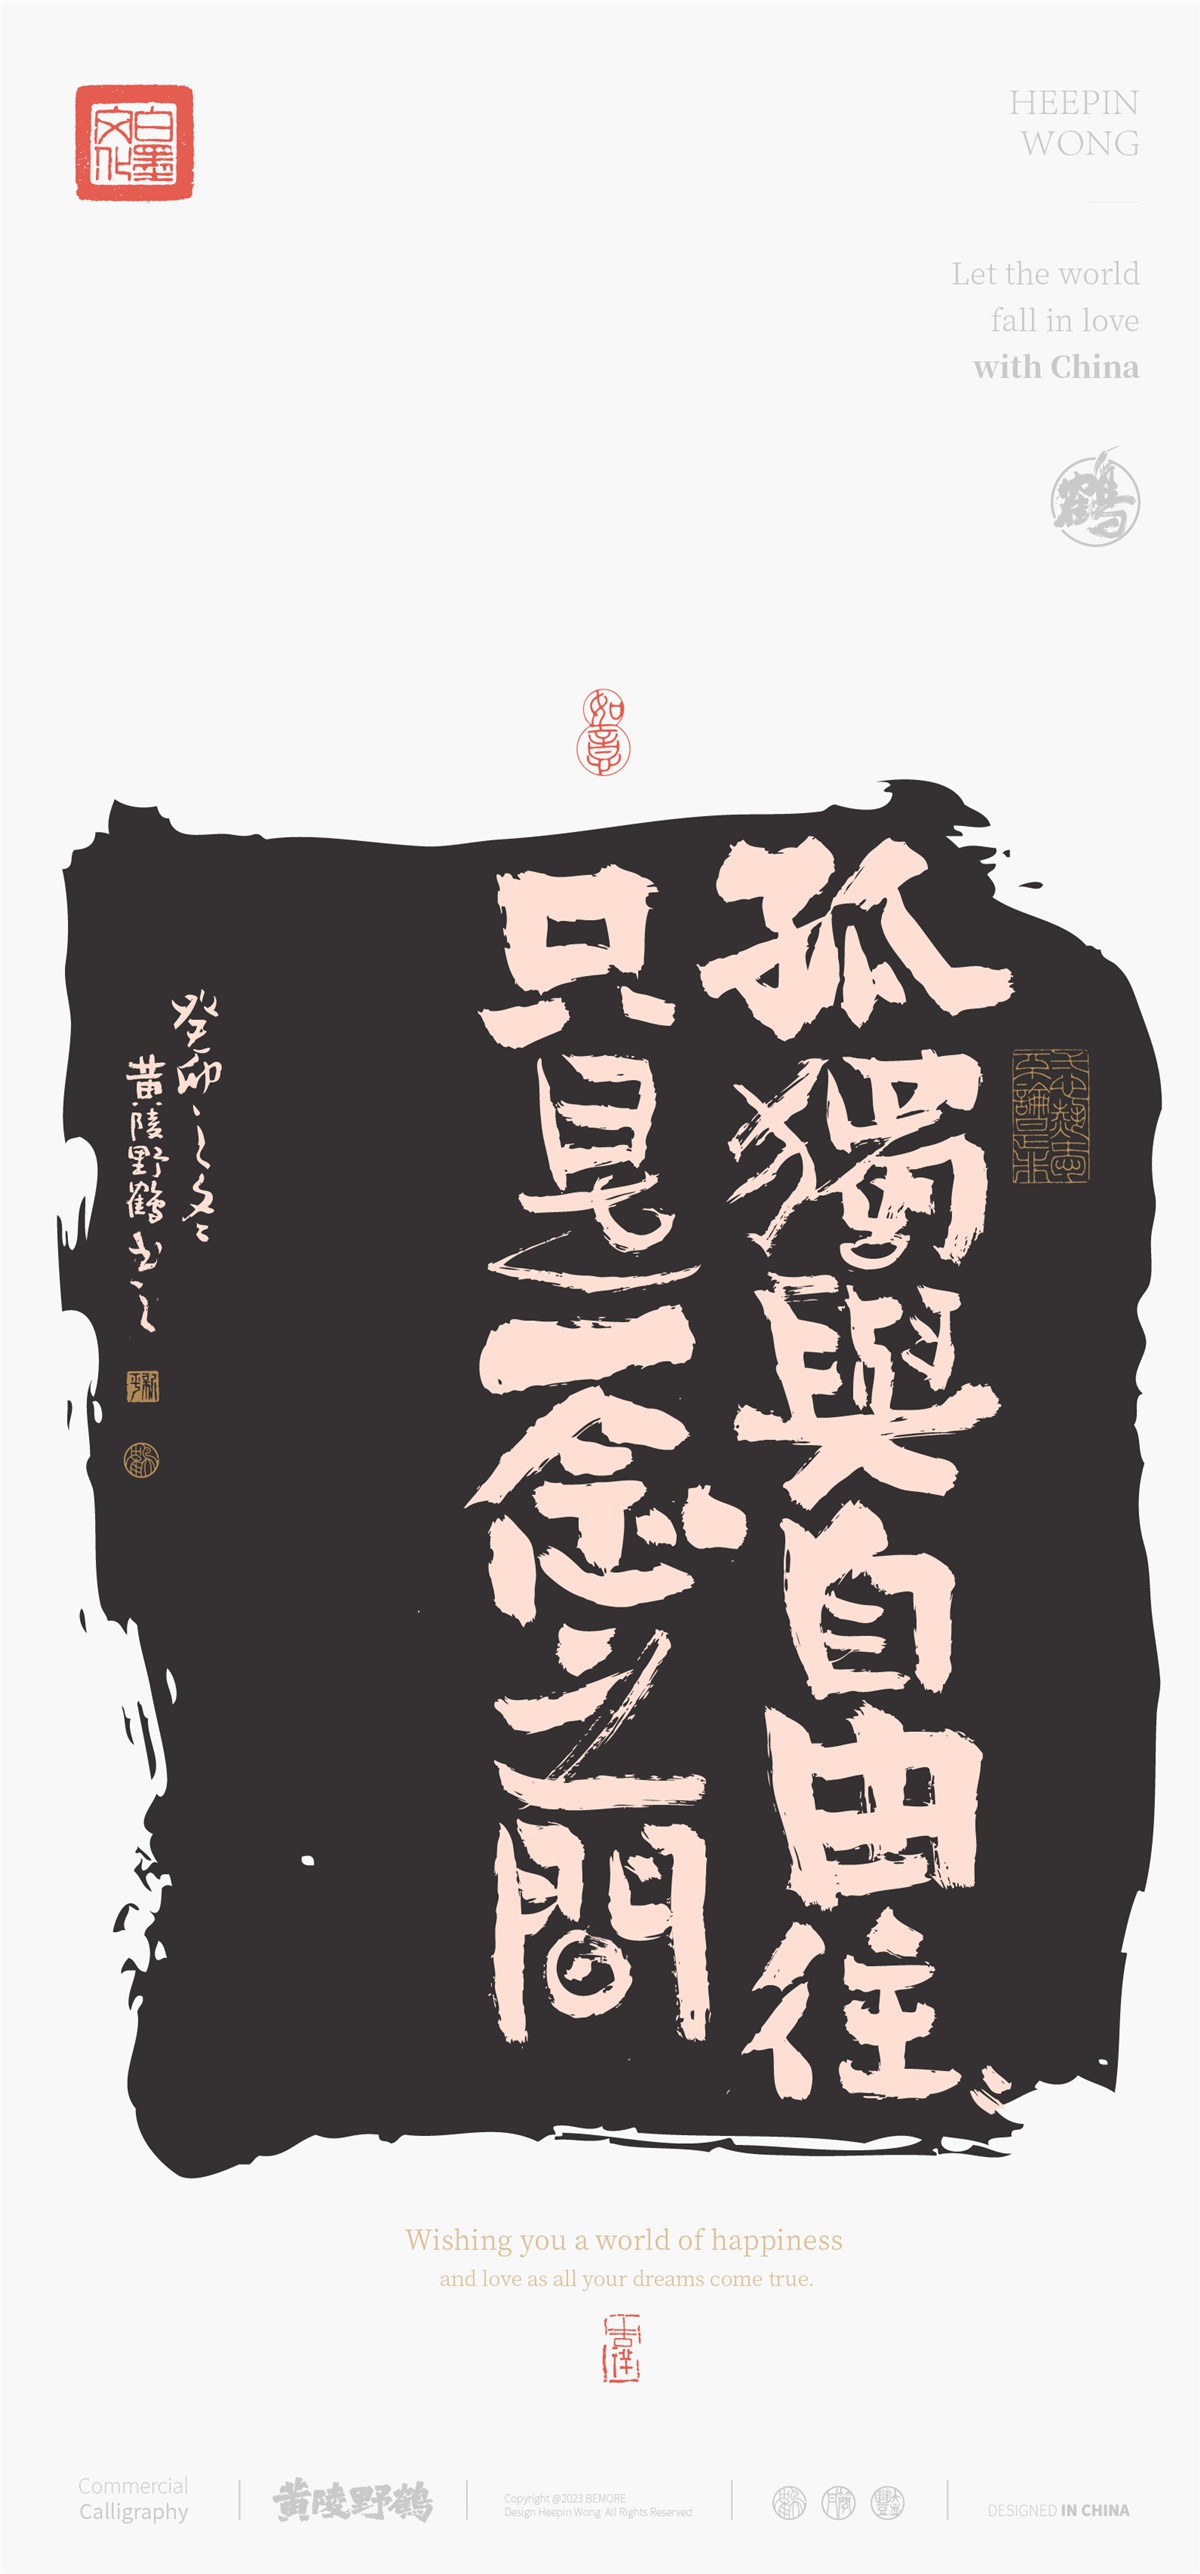 白墨
文化
HEEPIN
WONG
Let the world
fall in love
with China
鶴
如意
孤獨與自由往
只是一念之間
癸卯之冬
黄陵野鶴书之
Wishing you a world of happiness
and love as all your dreams come true.
吉祥
Commercial
Calligraphy
黄陵野鶴
Copyright @2023 BEMORE
Design Heepin Wong All Rights Reserved
DESIGNED IN CHINA